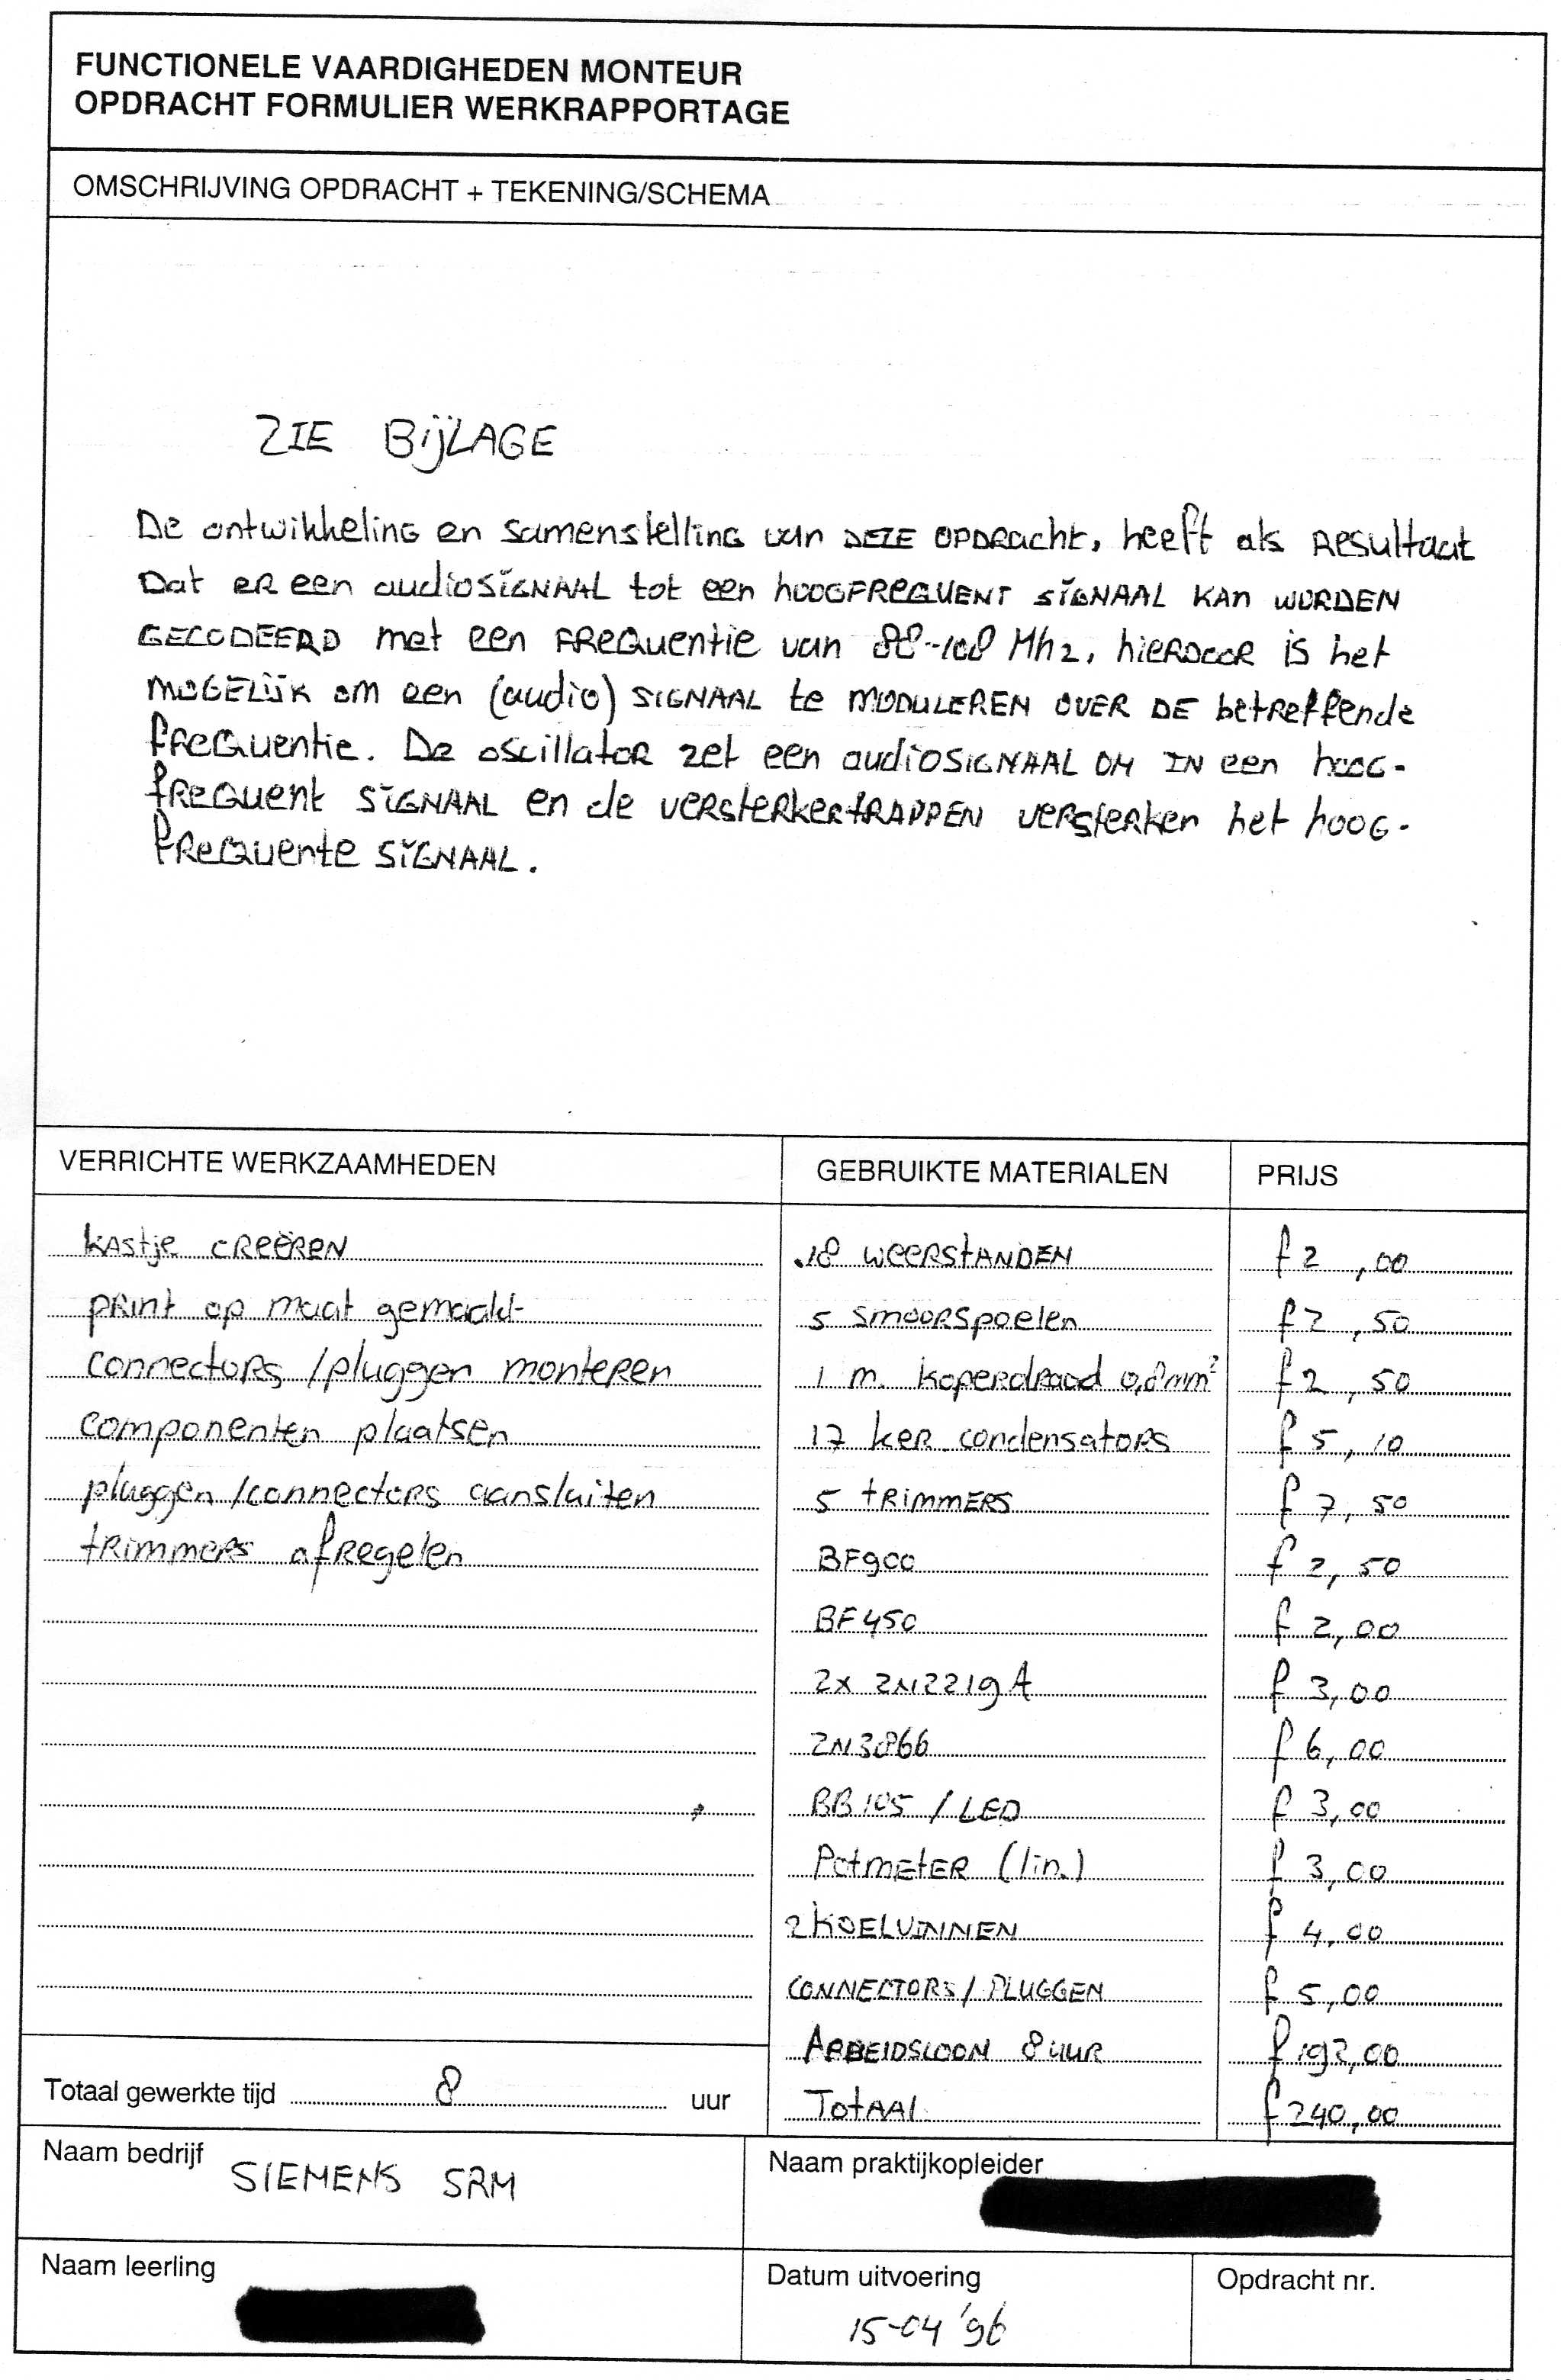 FUNCTIONELE VAARDIGHEDEN MONTEUR
OPDRACHT FORMULIER WERKRAPPORTAGE
OMSCHRIJVING OPDRACHT + TEKENING/SCHEMA
ZIE BIJLAGE
De ontwikkeling en samenstelling van DEZE OPDRACHT, heeft als RESultaat
Dat er een audioSIGNAAL tot een HOOGFREQUENT SIGNAAL KAN WORDEN
GECODEERD met een FREQUENTIE van 88-108 Mhz, HIERDOOR is het
MOGELIJK om een (audio) SIGNAAL te MODULEREN OVER DE betREffende
FREQUENTIE. De oscillator zet een audioSIGNAAL OM IN een HOOG-
FREQUENT SIGNAAL en de VERSTERKERTRAPPEN VERSTERKEN het HOOG-
FREQUENTE SIGNAAL.
VERRICHTE WERKZAAMHEDEN GEBRUIKTE MATERIALEN PRIJS
kastje CREËREN 18 WEERSTANDEN f 2,00
print op maat gemaakt 5 SMOORSPOELEN f 2,50
connectors/pluggen monteren 1 m. koperdraad 0,8mm² f 2,50
componenten plaatsen 17 ker condensators f 5,10
pluggen/connectors aansluiten 5 TRIMMERS f 7,50
trimmers afregelen BF900 f 2,50
BF450 f 2,00
2x 2N2219A f 3,00
2N3866 f 6,00
BB105 / LED f 3,00
Potmeter (lin.) f 3,00
2 KOELVINNEN f 4,00
CONNECTORS/PLUGGEN f 5,00
ARBEIDSLOON 8 UUR f 192,00
Totaal gewerkte tijd 8 uur Totaal f 240,00
Naam bedrijf SIEMENS SRM Naam praktijkopleider
Naam leerling Datum uitvoering Opdracht nr.
15-04 '96